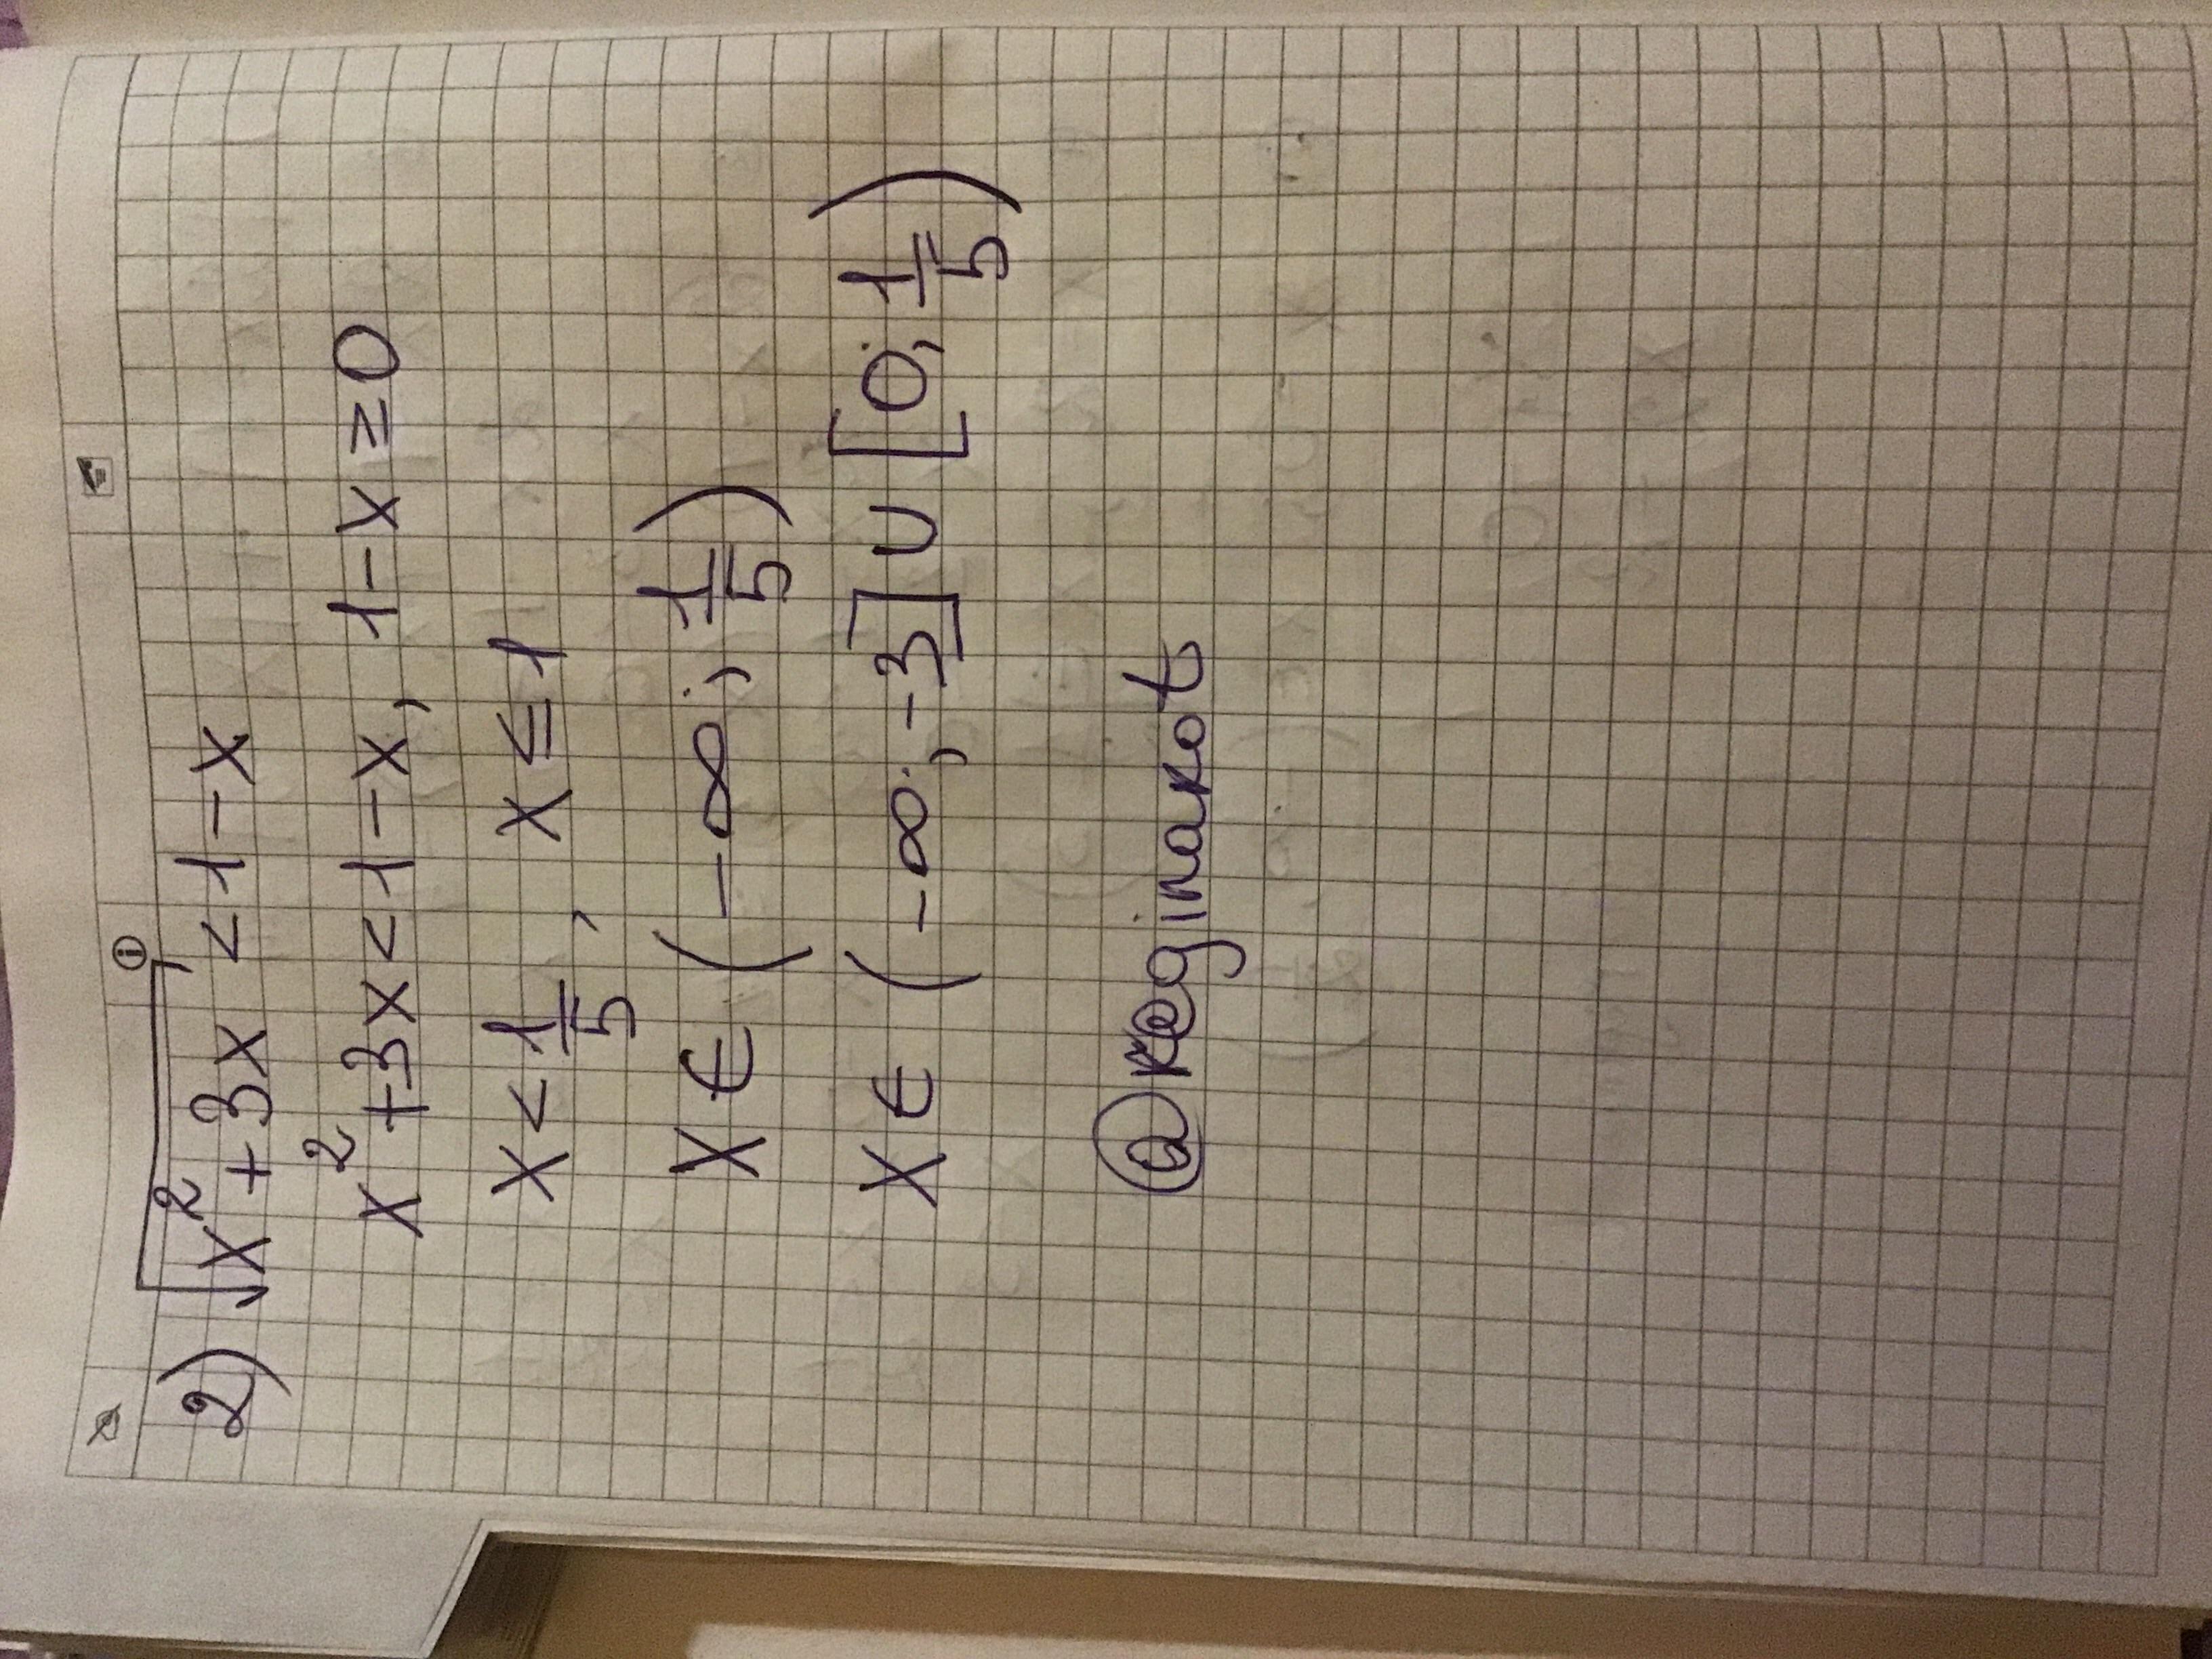 2) √x² + 3x < 1 - x
x² + 3x < 1 - x, 1 - x ≥ 0
x < 1/5, x ≤ 1
x ∈ (-∞; 1/5)
x ∈ (-∞; -3] ∪ [0; 1/5)
@reginakot